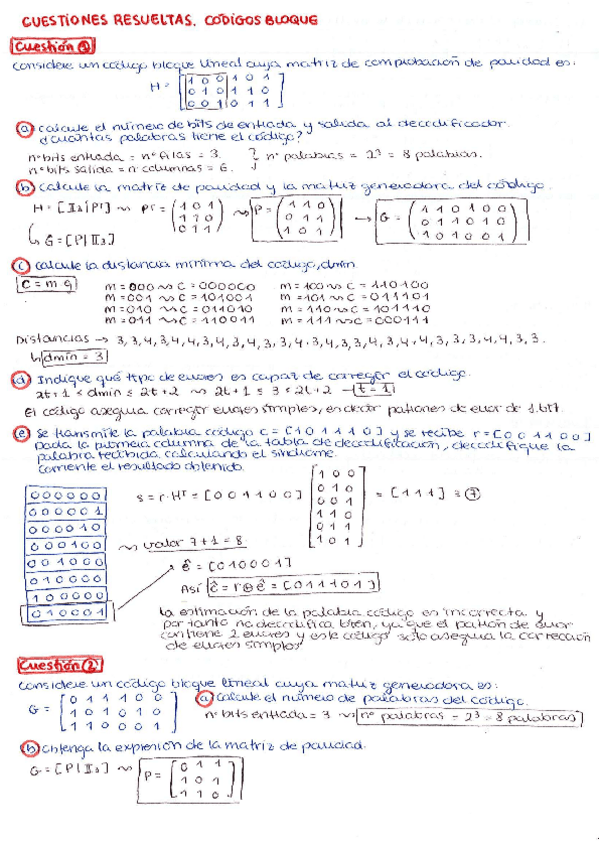 CUESTIONES RESUELTAS. CÓDIGOS BLOQUE
Cuestión 1
Considere un código bloque lineal cuya matriz de comprobación de paridad es:
H = [1 0 0 1 0 1
0 1 0 1 1 0
0 0 1 0 1 1]
a) Calcule el número de bits de entrada y salida al decodificador.
¿Cuántas palabras tiene el código?
nº bits entrada = nº filas = 3. } nº palabras = 2³ = 8 palabras.
nº bits salida = nº columnas = 6.
b) Calcule la matriz de paridad y la matriz generadora del código.
H = [I₃|Pᵀ] ⇝ Pᵀ = (1 0 1
1 1 0
0 1 1) ⇝ P = (1 1 0
0 1 1
1 0 1) → G = (1 1 0 1 0 0
0 1 1 0 1 0
1 0 1 0 0 1)
↳ G = [P|I₃]
c) Calcule la distancia mínima del código, dmin.
C = m g
m = 000 ⇝ C = 000000 m = 100 ⇝ C = 110100
m = 001 ⇝ C = 101001 m = 101 ⇝ C = 011101
m = 010 ⇝ C = 011010 m = 110 ⇝ C = 101110
m = 011 ⇝ C = 110011 m = 111 ⇝ C = 000111
Distancias → 3,3,4,3,4,4,3,4,3,4,3,3,4,3,4,3,3,4,3,4,4,3,3,4,3,3.
↳ dmín = 3
d) Indique qué tipo de errores es capaz de corregir el código.
2t+1 ≤ dmin ≤ 2t+2 ⇝ 2t+1 ≤ 3 ≤ 2t+2 → t = 1
El código asegura corregir errores simples, es decir patrones de error de 1 bit.
e) Se transmite la palabra código c = [1 0 1 1 1 0] y se recibe r = [0 0 1 1 0 0]
Dada la primera columna de la tabla de decodificación, decodifique la
palabra recibida calculando el síndrome.
Comente el resultado obtenido.
000000
000001
000010
000100
001000
010000
100000
010001
s = r·Hᵀ = [0 0 1 1 0 0] [1 0 0
0 1 0
0 0 1
1 1 0
0 1 1
1 0 1] = [1 1 1] = 7
⇝ valor 7+1 = 8
ê = [010001]
Así ĉ = r⊕ê = [011101]
La estimación de la palabra código es incorrecta y
por tanto no decodifica bien, ya que el patrón de error
contiene 2 errores y este código solo asegura la corrección
de errores simples
Cuestión 2
Considere un código bloque lineal cuya matriz generadora es:
G = [0 1 1 1 0 0
1 0 1 0 1 0
1 1 0 0 0 1]
a) Calcule el número de palabras del código.
nº bits entrada = 3 ⇝ nº palabras = 2³ = 8 palabras
b) Obtenga la expresión de la matriz de paridad.
G = [P|I₃] ⇝ P = [0 1 1
1 0 1
1 1 0]